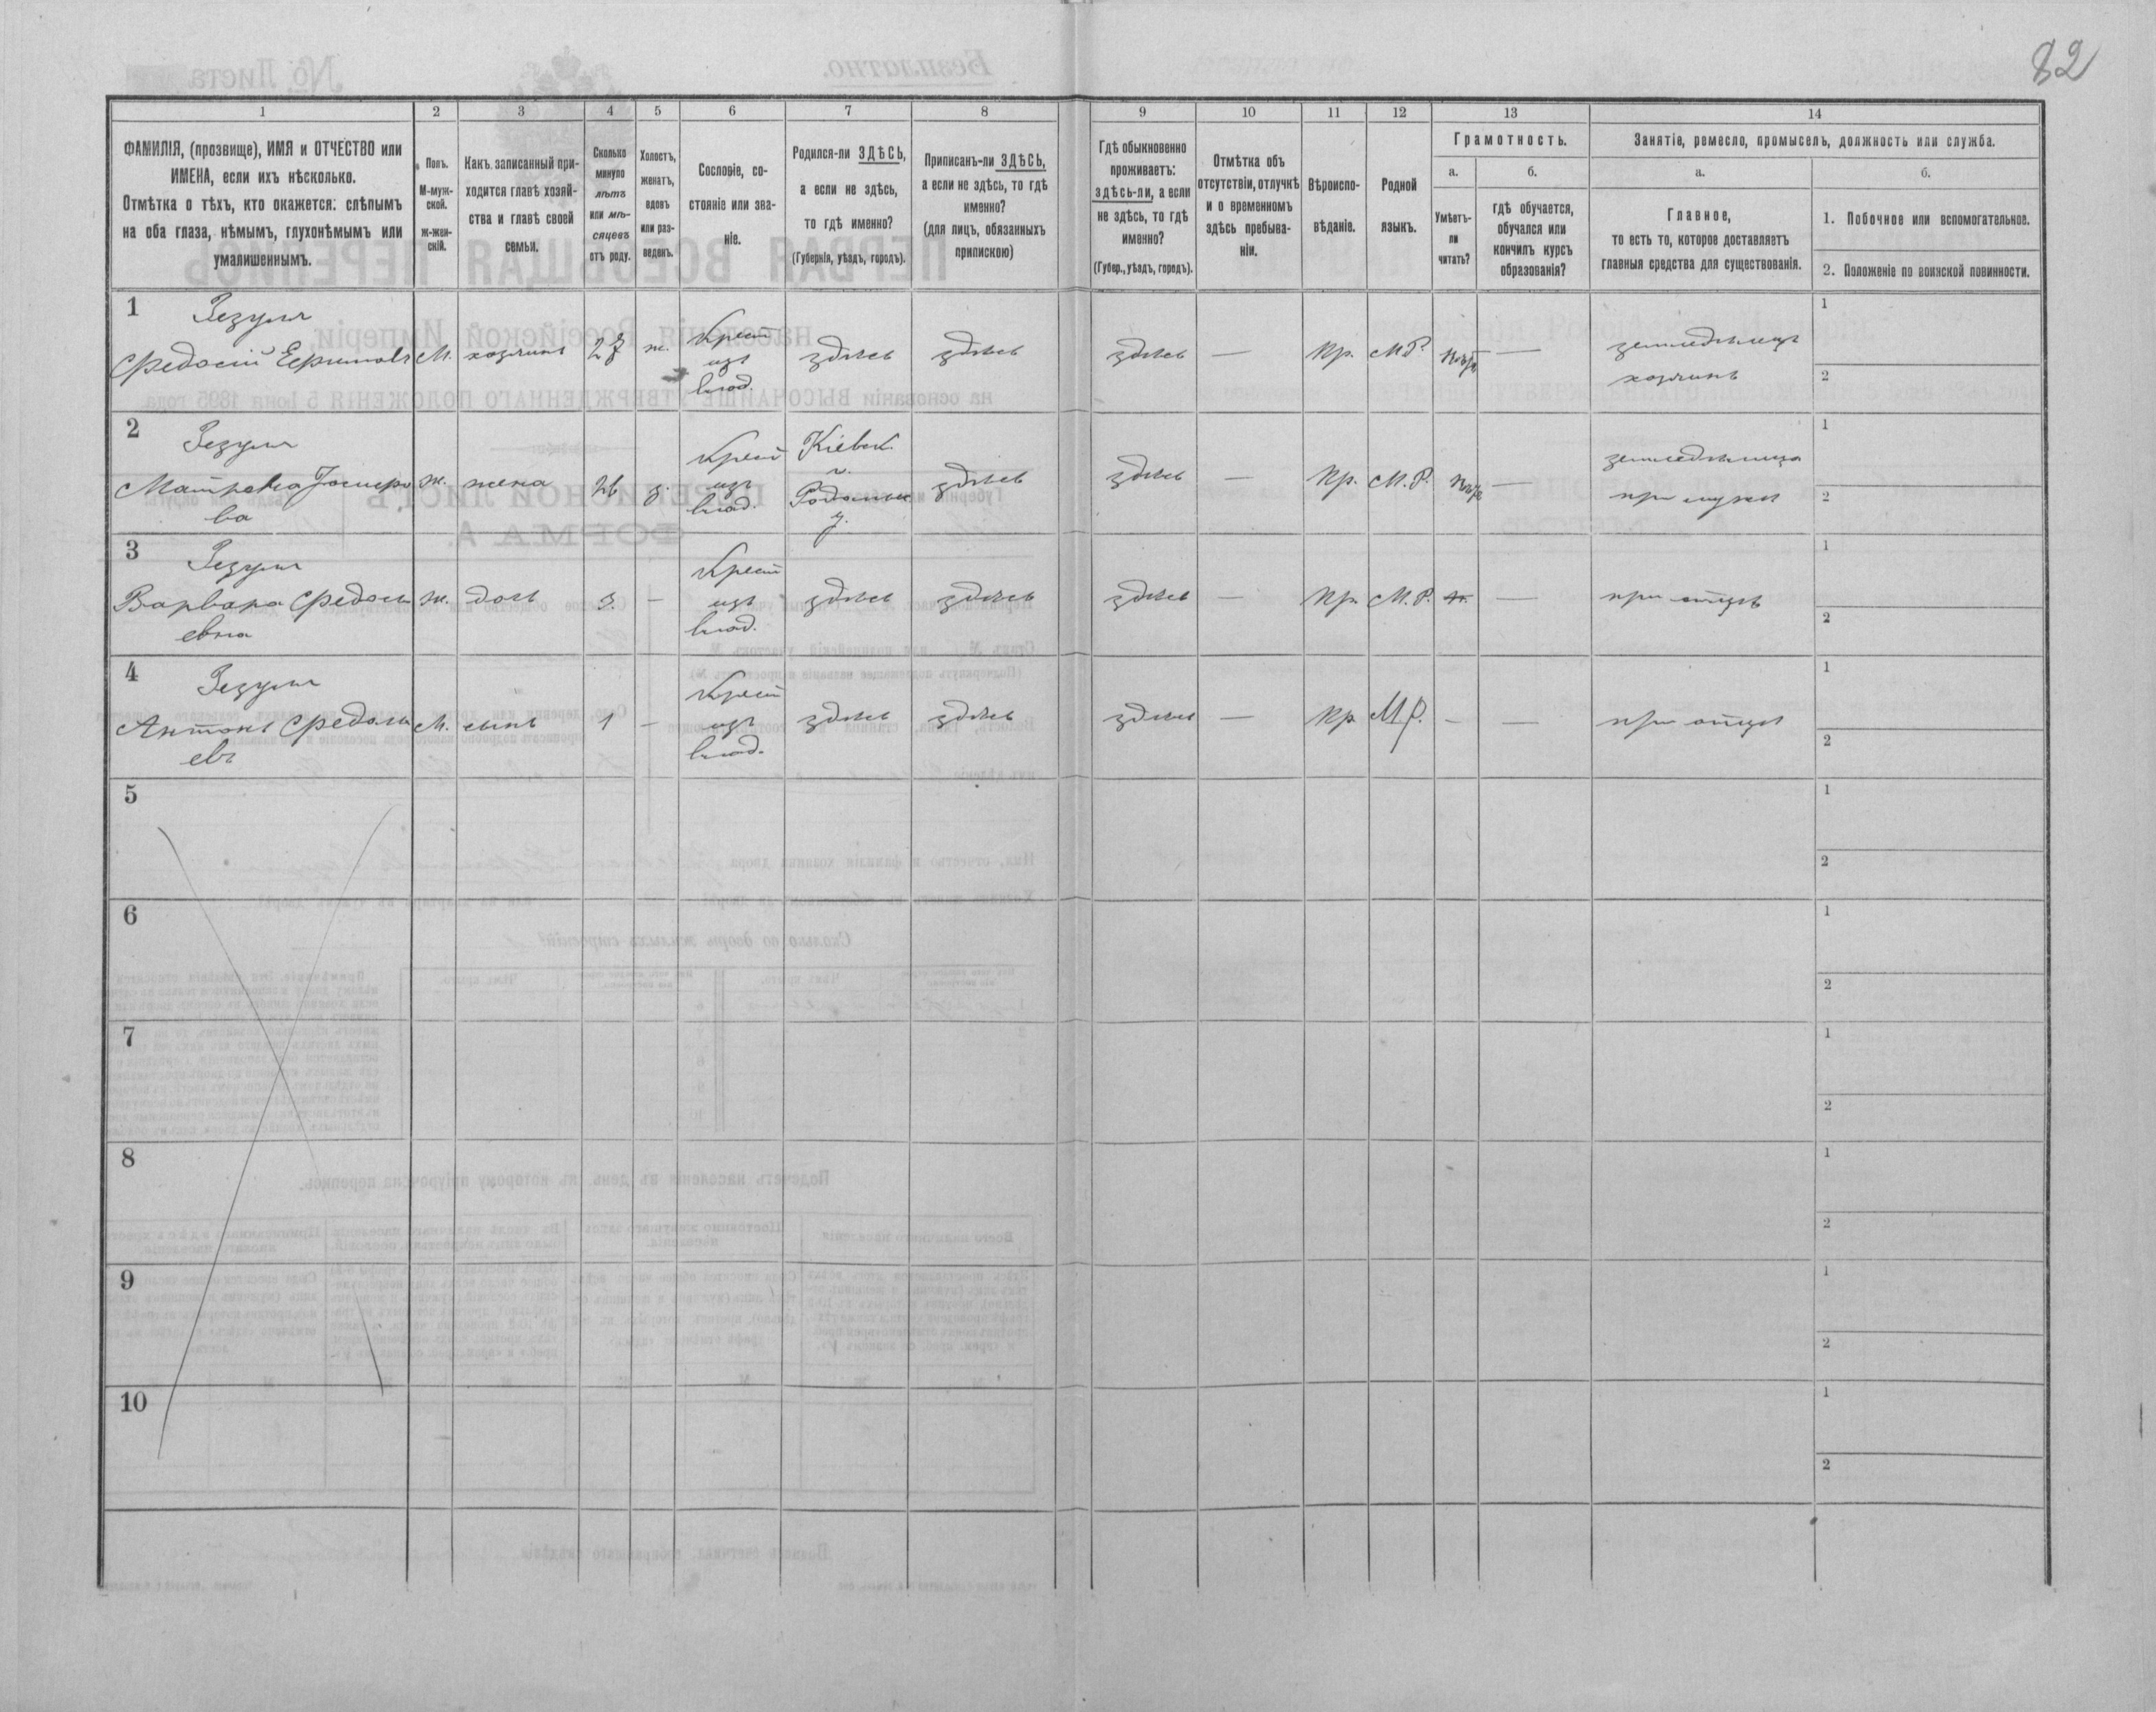 82
1 2 3 4 5 6 7 8 9 10 11 12 13 14
ФАМИЛІЯ, (прозвище), ИМЯ и ОТЧЕСТВО или
ИМЕНА, если ихъ нѣсколько.
Отмѣтка о тѣхъ, кто окажется: слѣпымъ
на оба глаза, нѣмымъ, глухонѣмымъ или
умалишеннымъ.
Полъ.
М-муж-
ской.
ж-жен-
скій.
Какъ записанный при-
ходится главѣ хозяй-
ства и главѣ своей
семьи.
Сколько
минуло
лѣтъ
или мѣ-
сяцевъ
отъ роду.
Холостъ,
женатъ,
вдовъ
или раз-
веденъ.
Сословіе, со-
стояніе или зва-
ніе.
Родился-ли ЗДѢСЬ,
а если не здѣсь,
то гдѣ именно?
(Губернія, уѣздъ, городъ).
Приписанъ-ли ЗДѢСЬ,
а если не здѣсь, то гдѣ
именно?
(для лицъ, обязанныхъ
припискою)
Гдѣ обыкновенно
проживаетъ:
здѣсь-ли, а если
не здѣсь, то гдѣ
именно?
(Губер., уѣздъ, городъ).
Отмѣтка объ
отсутствіи, отлучкѣ
и о временномъ
здѣсь пребыва-
ніи.
Вѣроиспо-
вѣданіе.
Родной
языкъ.
Грамотность.
а.
Умѣетъ-
ли
читать?
б.
гдѣ обучается,
обучался или
кончилъ курсъ
образованія?
Занятіе, ремесло, промыселъ, должность или служба.
а.
Главное,
то есть то, которое доставляетъ
главныя средства для существованія.
б.
1. Побочное или вспомогательное.
2. Положеніе по воинской повинности.
1 Зезуля
Федосій Ефимовъ М. хозяинъ 27 ж. Крест изъ влад. здѣсь здѣсь здѣсь — Пр. М.Р. — земледѣлецъ хозяинъ 1 2
2 Зезуля
Матрена ж. жена 26 з. Крест изъ влад. Кіевск. г. здѣсь здѣсь — Пр. М.Р. — земледѣлица при мужѣ 1 2
3 Зезуля
Варвара Федось ж. дочь 3 — Крест изъ влад. здѣсь здѣсь здѣсь — Пр. М.Р. — при отцѣ 1 2
евна
4 Зезуля
Антонъ Федось М. сынъ 1 — Крест изъ влад. здѣсь здѣсь здѣсь — Пр. М.Р. — — при отцѣ 1 2
евъ
5 1 2
6 1 2
7 1 2
8 1 2
9 1 2
10 1 2